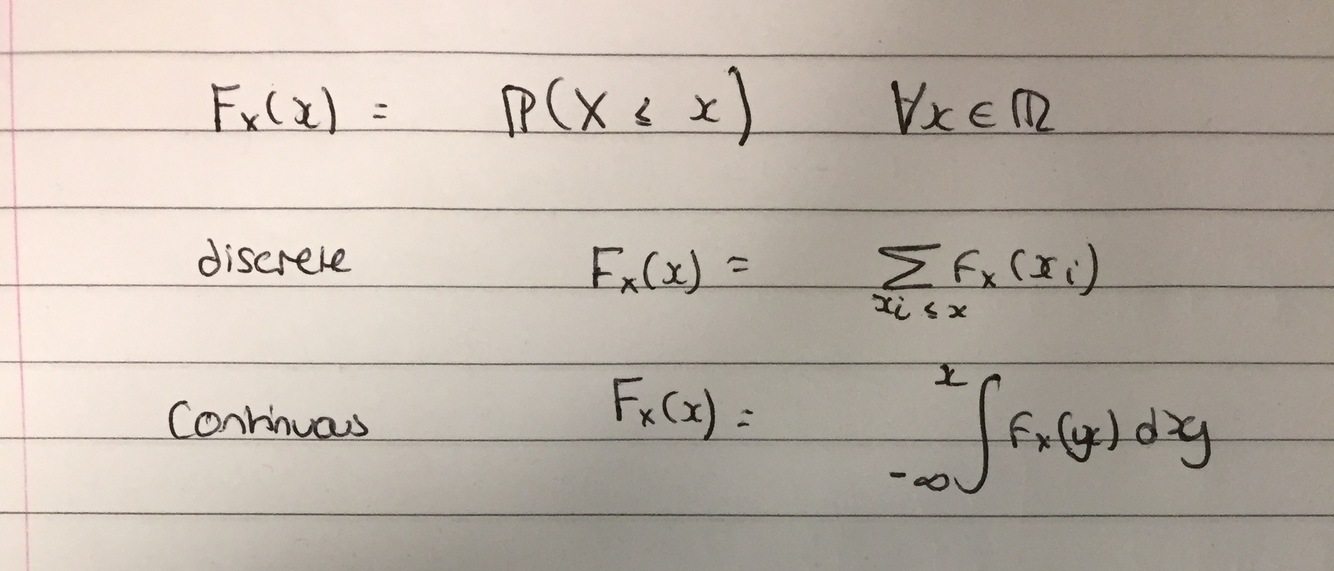 Fₓ(x) = ℙ(X ≤ x) ∀x ∈ ℝ
discrete Fₓ(x) = ∑_{xi ≤ x} fₓ(xi)
Continuous Fₓ(x) = ∫_{-∞}^{x} fₓ(y) dy